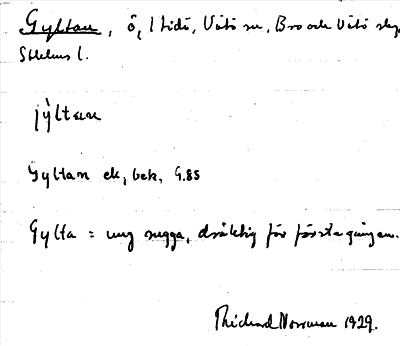 Gyltan, ö, 1 tidö, Vätö sn, Bro och Vätö skg,
Sthlms l.
jỳltan
Gyltan ek, bek, G.85
Gylta = ung sugga, dräktig för första gången.
Rickard Norrman 1929.